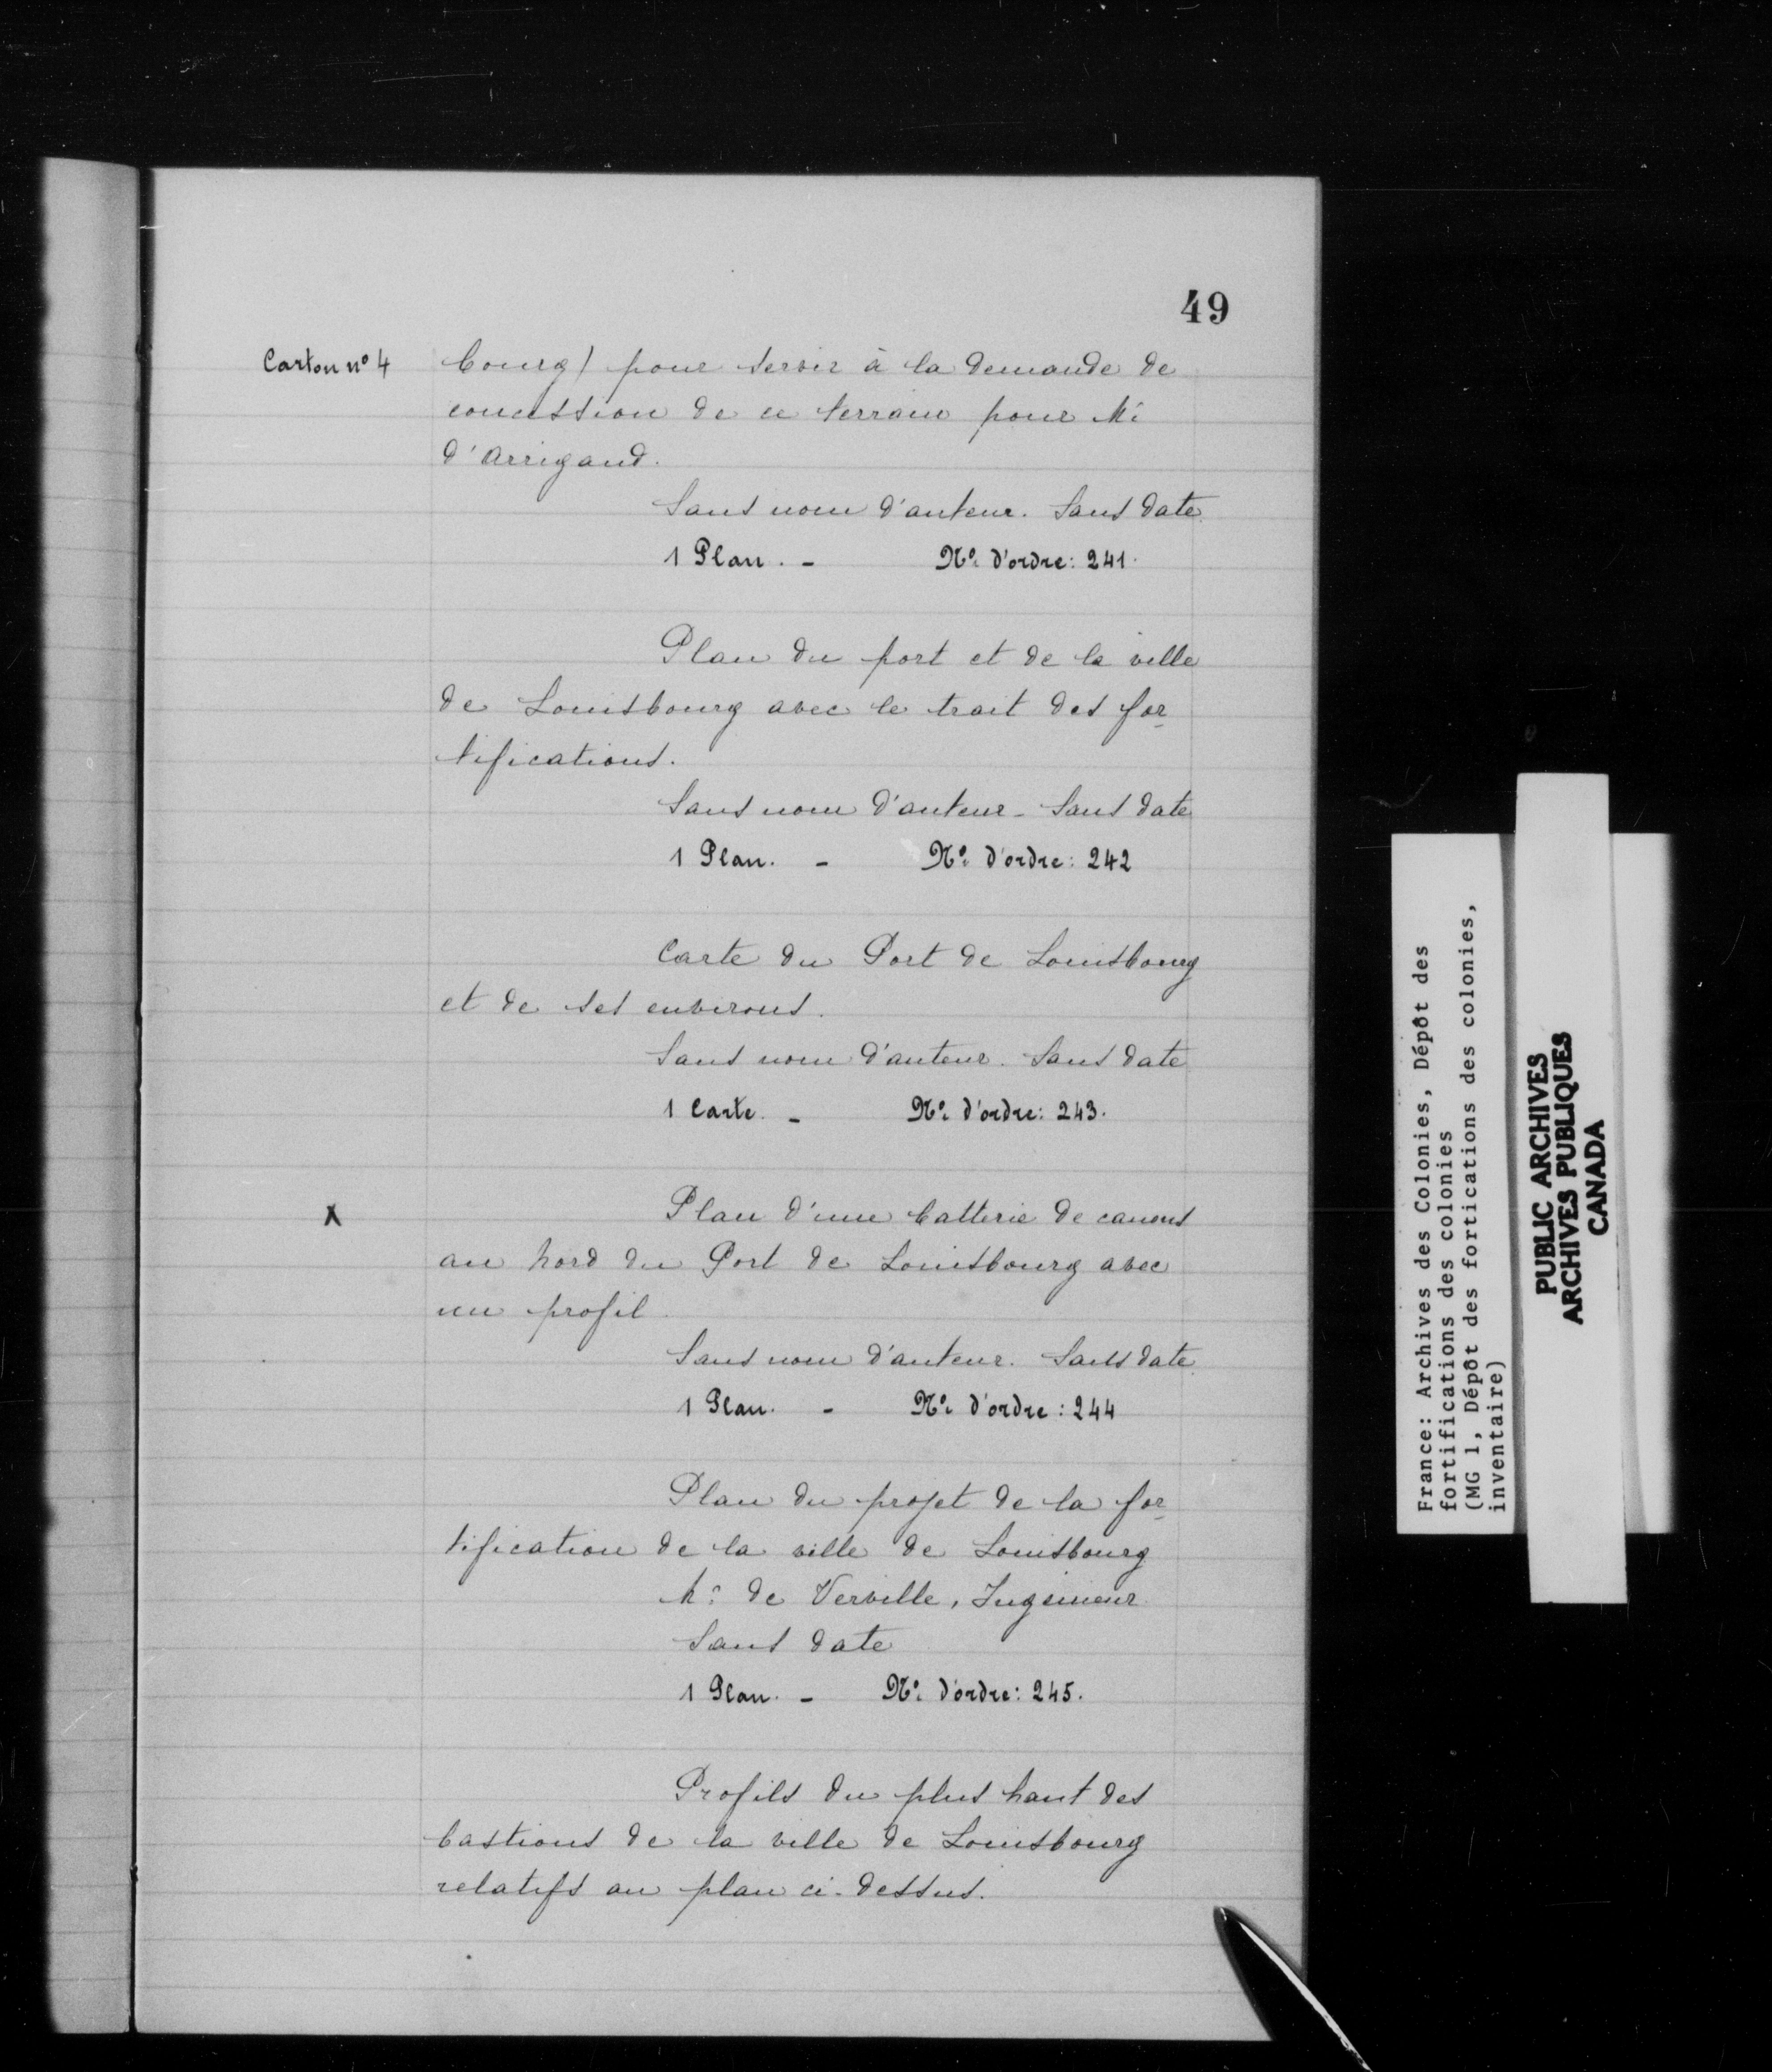 49
Carton nº 4
bourg) pour servir à la demande de
concession de ce terrain pour Mr
d'Arrigand.
Sans nom d'auteur. Sans date.
1 Plan. - Nº d'ordre: 241.
Plan du port et de la ville
de Louisbourg avec le trait des for-
tifications.
Sans nom d'auteur - Sans date
1 Plan. - Nº d'ordre: 242
Carte du Port de Louisbourg
et de ses environs.
Sans nom d'auteur. Sans date
1 Carte. - Nº d'ordre: 243.
X
Plan d'une batterie de canons
au nord du Port de Louisbourg avec
un profil.
Sans nom d'auteur. Sans date.
1 Plan. - Nº d'ordre: 244
Plan du projet de la for-
tification de la ville de Louisbourg
Mr de Verville, Ingénieur
Sans date
1 Plan. - Nº d'ordre: 245.
Profils du plus haut des
bastions de la ville de Louisbourg
relatifs au plan ci-dessus.
France: Archives des Colonies, Dépôt des
fortifications des colonies
(MG 1, Dépôt des fortications des colonies,
inventaire)
PUBLIC ARCHIVES
ARCHIVES PUBLIQUES
CANADA